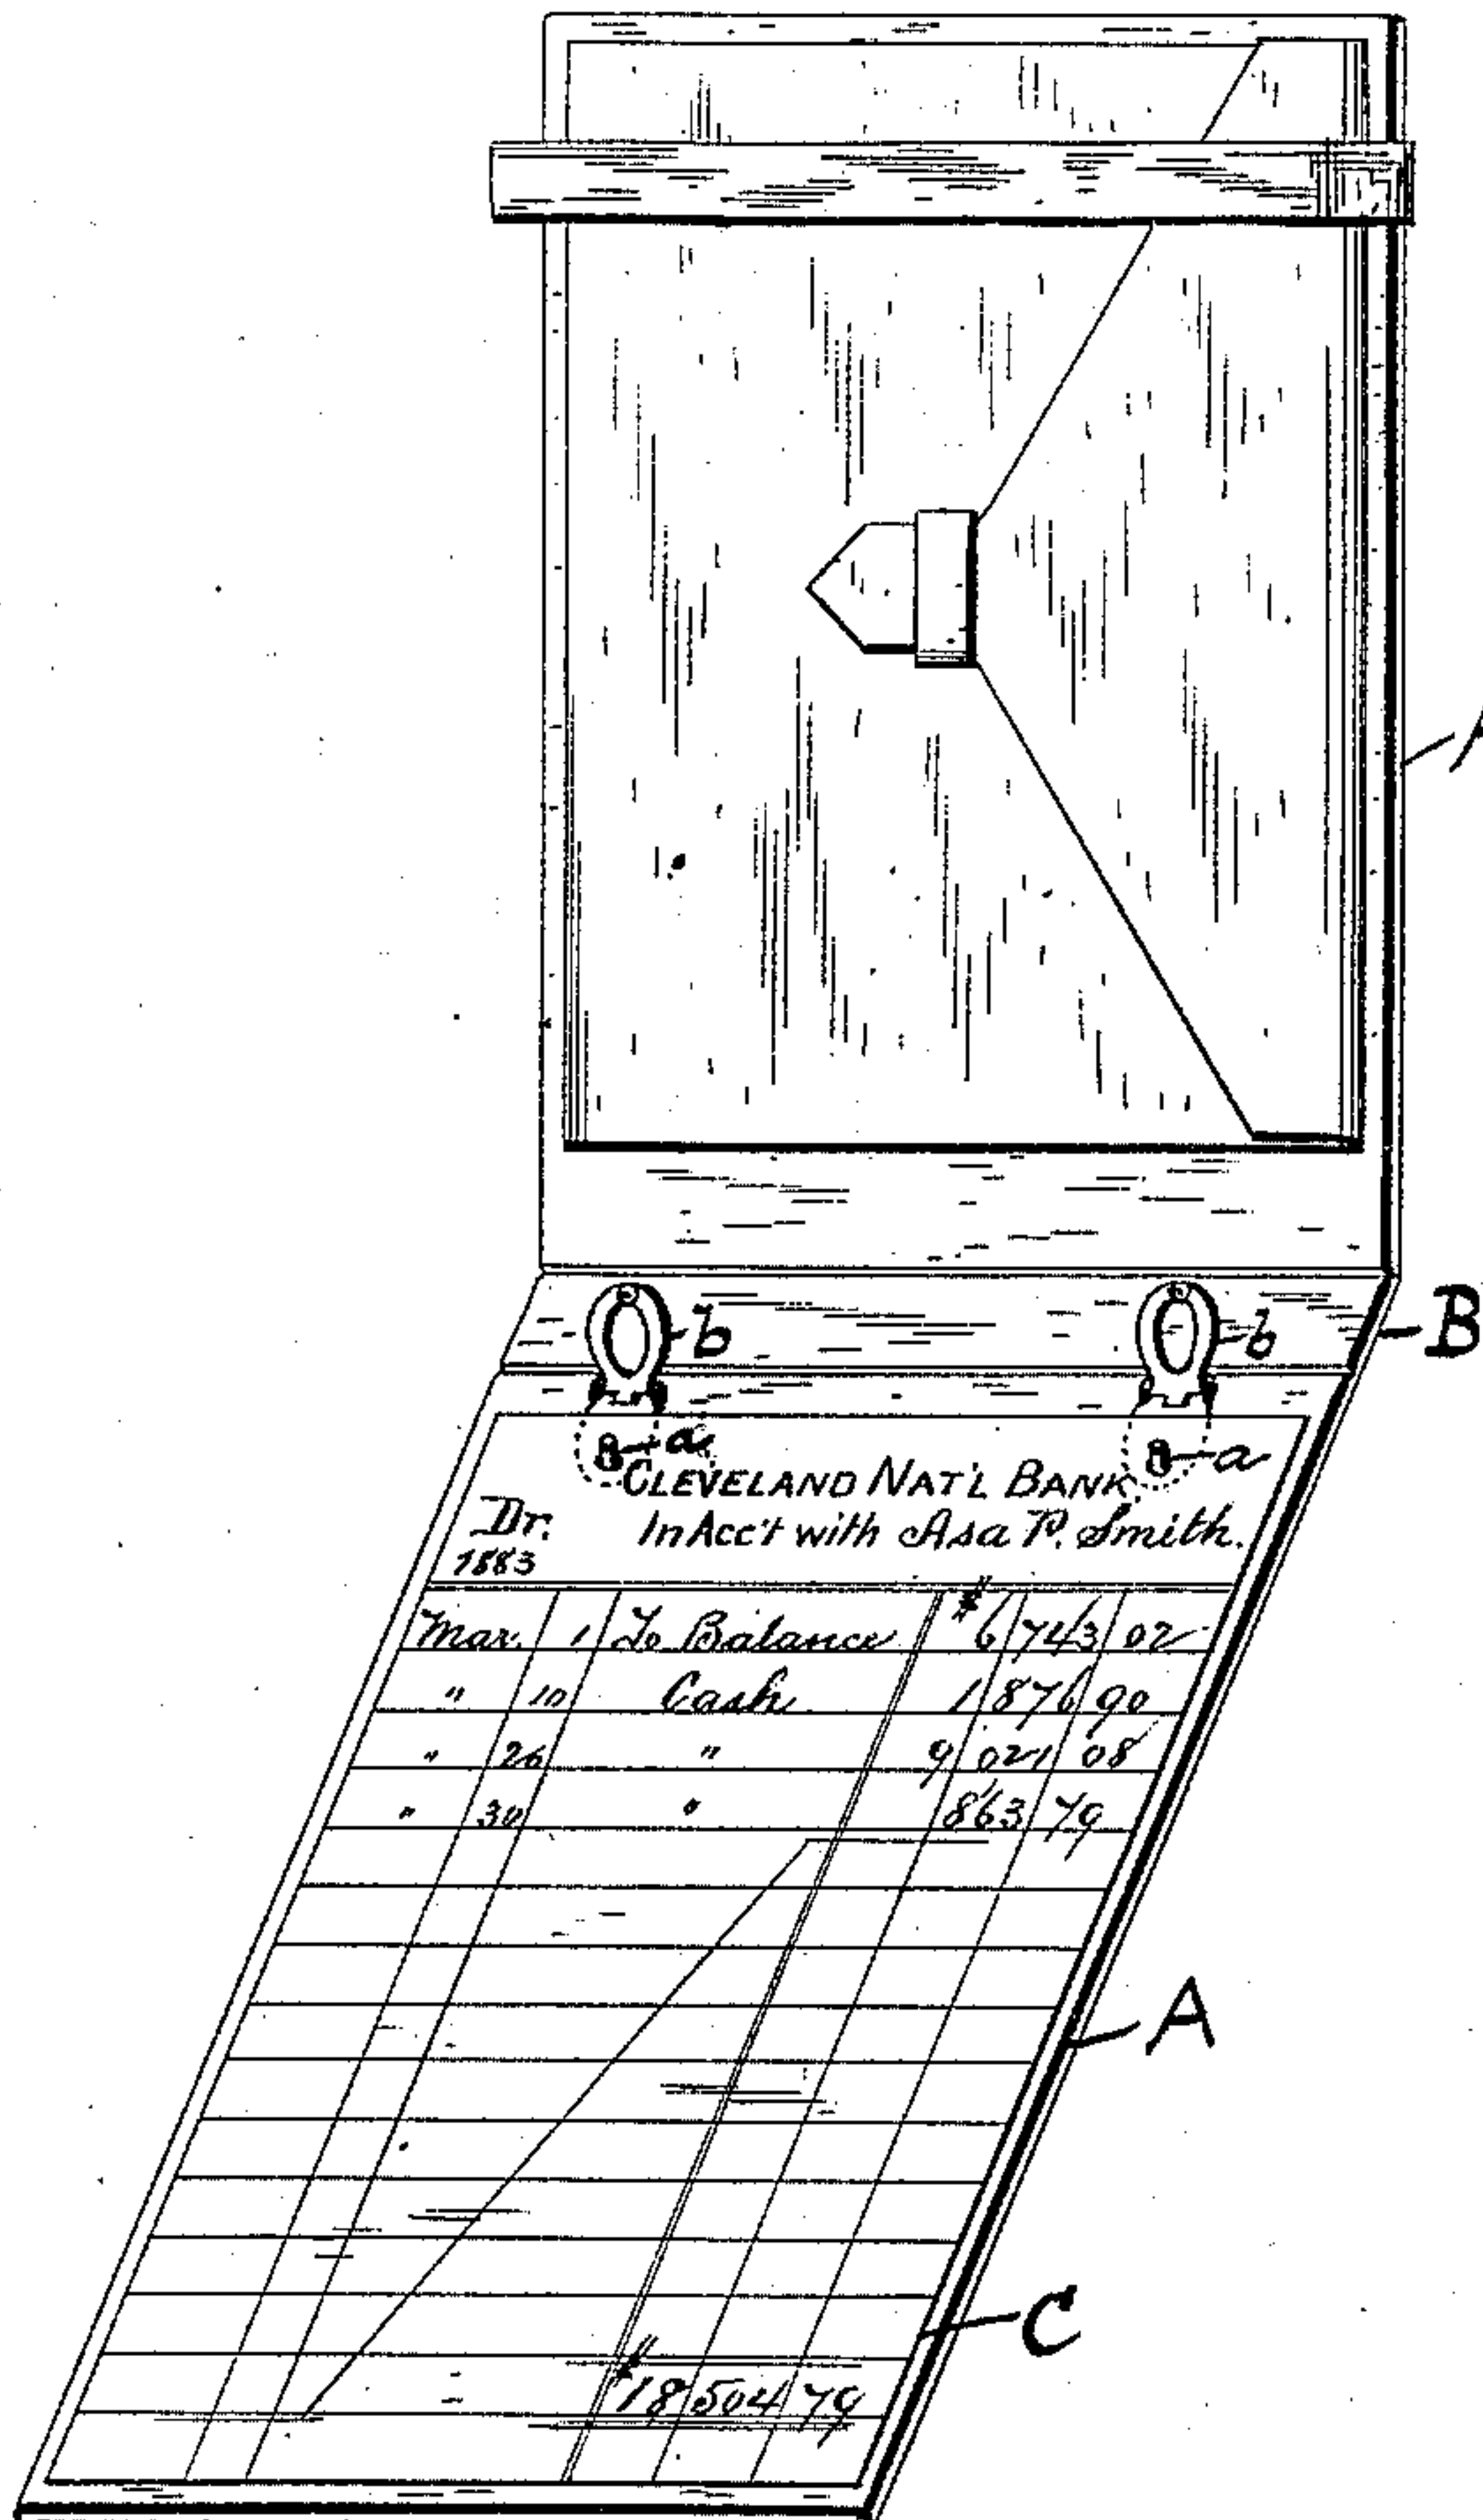 B
b b
a a
CLEVELAND NAT'L BANK,
Dr. In Acc't with Asa P. Smith.
1883
Mar. 1 To Balance $ 6 743 02
" 10 Cash 1 876 90
" 26 " 9 021 08
" 30 " 863 79
A
C
$18 504 79